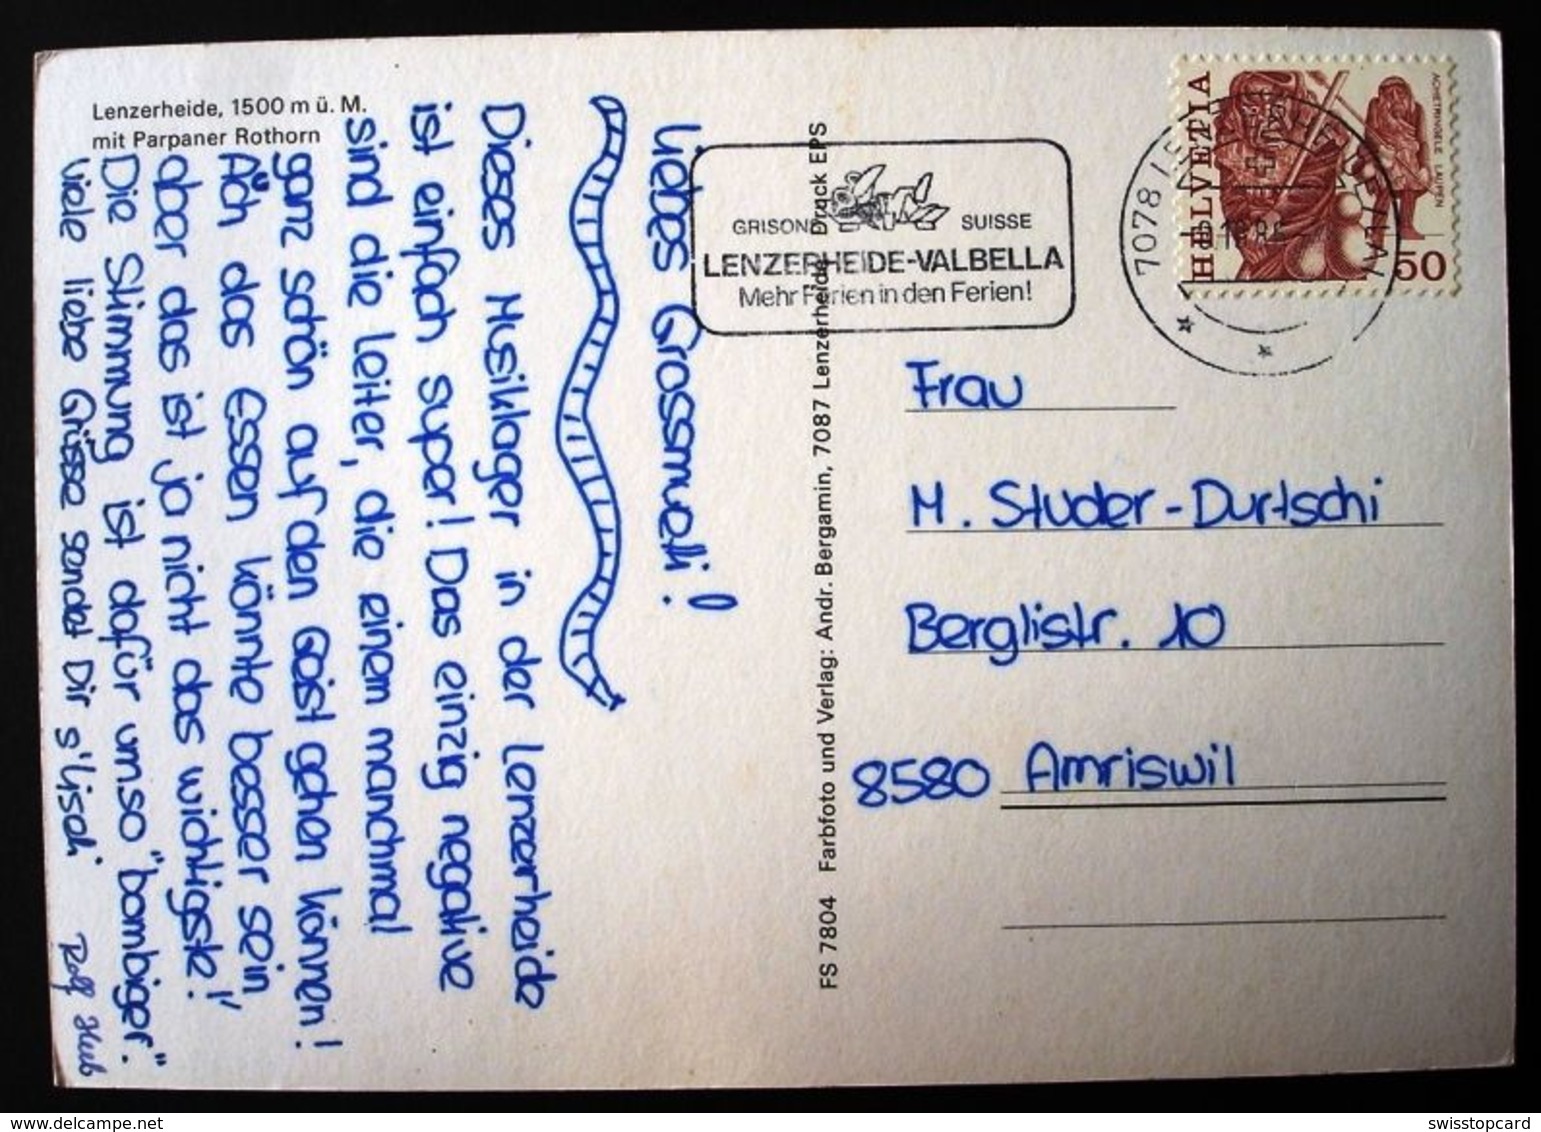 Lenzerheide, 1500 m ü. M.
mit Parpaner Rothorn
Liebes Grossmueti!
Dieses Musiklager in der Lenzerheide
ist einfach super! Das einzig negative
sind die Leiter, die einem manchmal
ganz schön auf den Geist gehen können!
Äch das Essen könnte besser sein
aber das ist ja nicht das wichtigste!
Die Stimmung ist dafür umso "bombiger".
Viele liebe Grüsse sendet Dir s'Lisch
Rolf Hub
FS 7804 Farbfoto und Verlag: Andr. Bergamin, 7087 Lenzerheide Druck EPS
GRISONS SUISSE
LENZERHEIDE-VALBELLA
Mehr Ferien in den Ferien!
7078
HELVETIA
ACHETRINGELE LAUPEN
50
Frau
M. Studer-Durtschi
Berglistr. 10
8580 Amriswil
swisstopcard